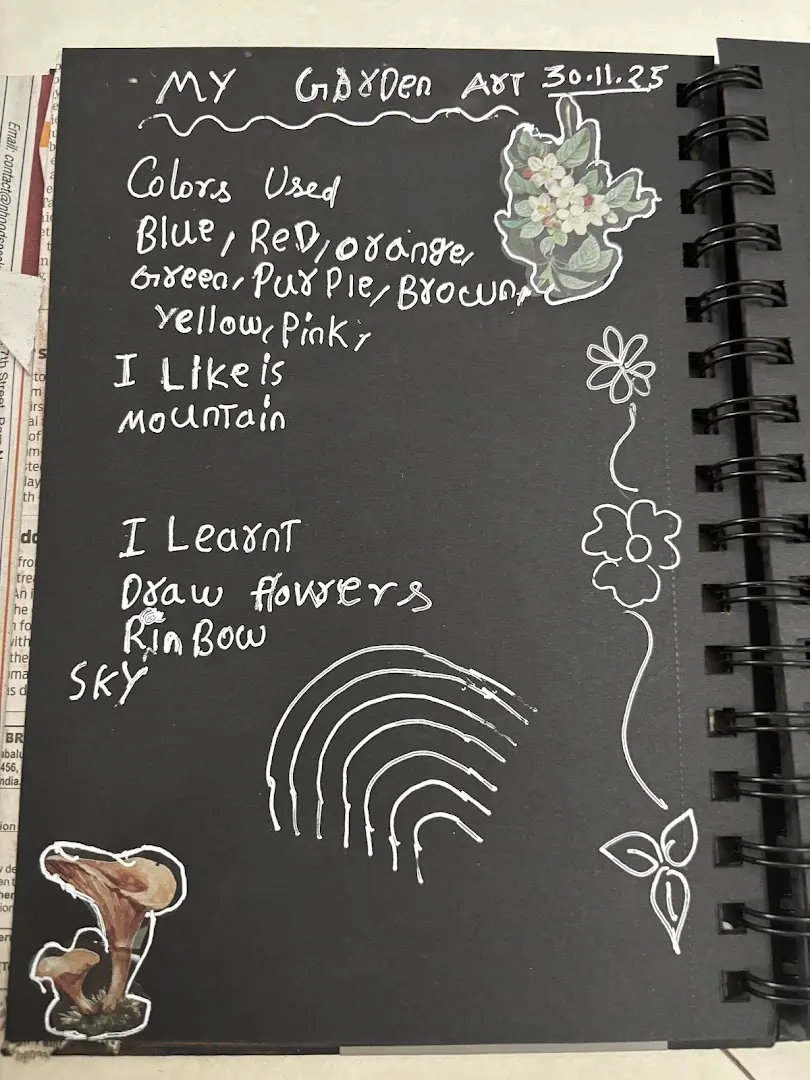 MY GArDen ArT 30.11.25
Colors Used
Blue, ReD, orange,
Green, PurPle, Brown,
Yellow, Pink,
I Like is
mounTain
I LearnT
Draw flowers
RinBow
SKY
Email: contact@
7th Street,